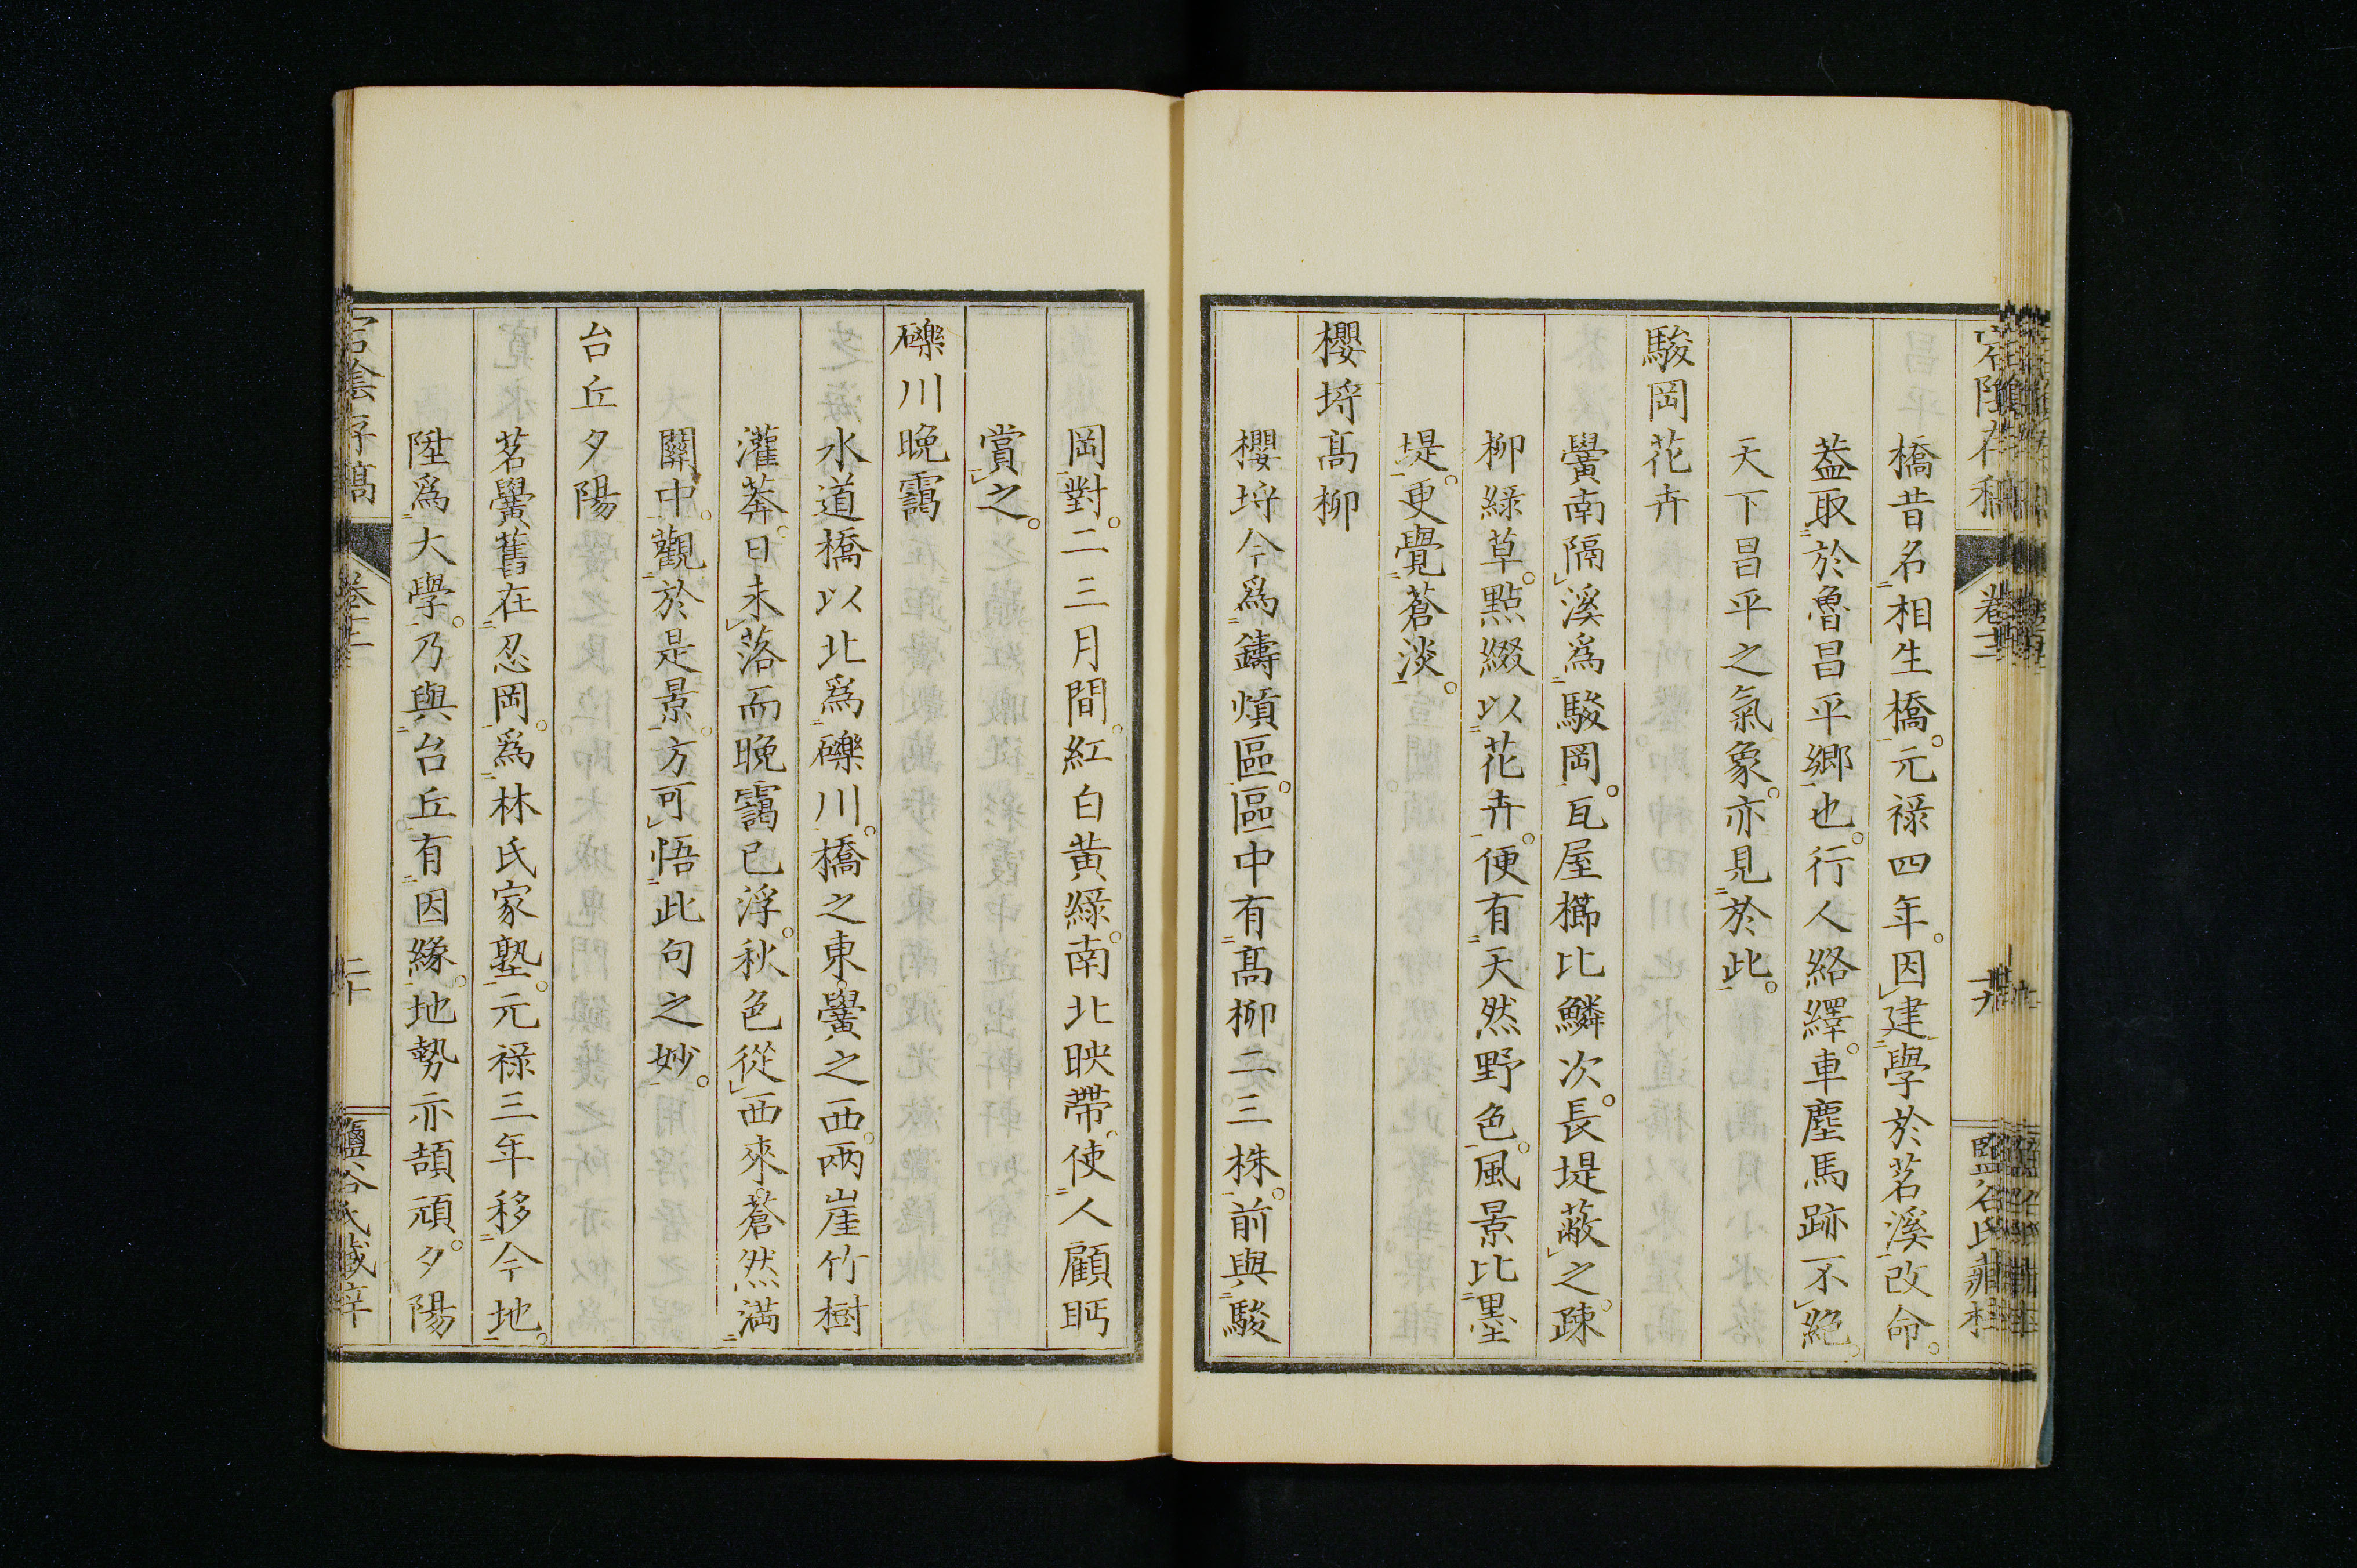 橋昔名相生橋。元祿四年。因建學於茗溪改命。
葢取於魯昌平鄉也。行人絡繹。車塵馬跡不絕。
天下昌平之氣象。亦見於此。
駿岡花卉
黌南隔溪爲駿岡。瓦屋櫛比鱗次。長堤蔽之。疎
柳綠草。點綴以花卉。便有天然野色。風景比墨
堤。更覺蒼淡。
櫻埒髙柳
櫻埒今爲鑄愼區。區中有髙柳二三株。前與駿
岡對。二三月間。紅白黃綠。南北映帶。使人顧眄
賞之。
礫川晚靄
水道橋以北爲礫川。橋之東。黌之西。兩崖竹樹
灌莽。日未落而晚靄已浮。秋色從西來。蒼然滿
關中。觀於是景。方可悟此句之妙。
台丘夕陽
茗黌舊在忍岡。爲林氏家塾。元祿三年移今地。
陞爲大學。乃與台丘有因緣。地勢亦頡頏。夕陽
卷十二
二十